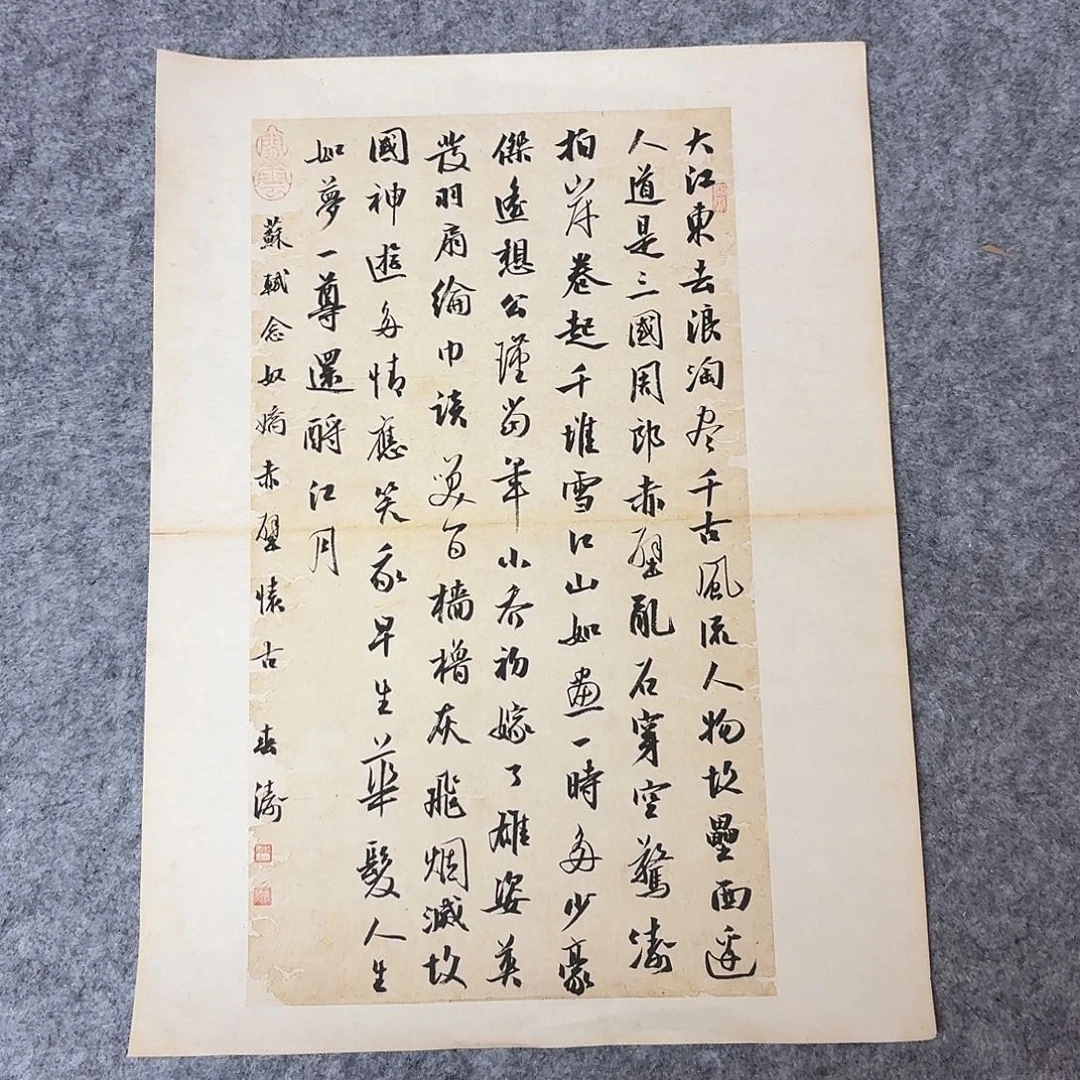 大江東去浪淘尽千古風流人物故壘西邊
人道是三國周郎赤壁亂石穿空驚濤
拍岸卷起千堆雪江山如畫一時多少豪
傑遙想公瑾當年小喬初嫁了雄姿英
發羽扇綸巾談笑間檣櫓灰飛烟滅故
國神遊多情應笑我早生華髮人生
如夢一尊還酹江月
蘇軾念奴嬌赤壁懷古 春濤